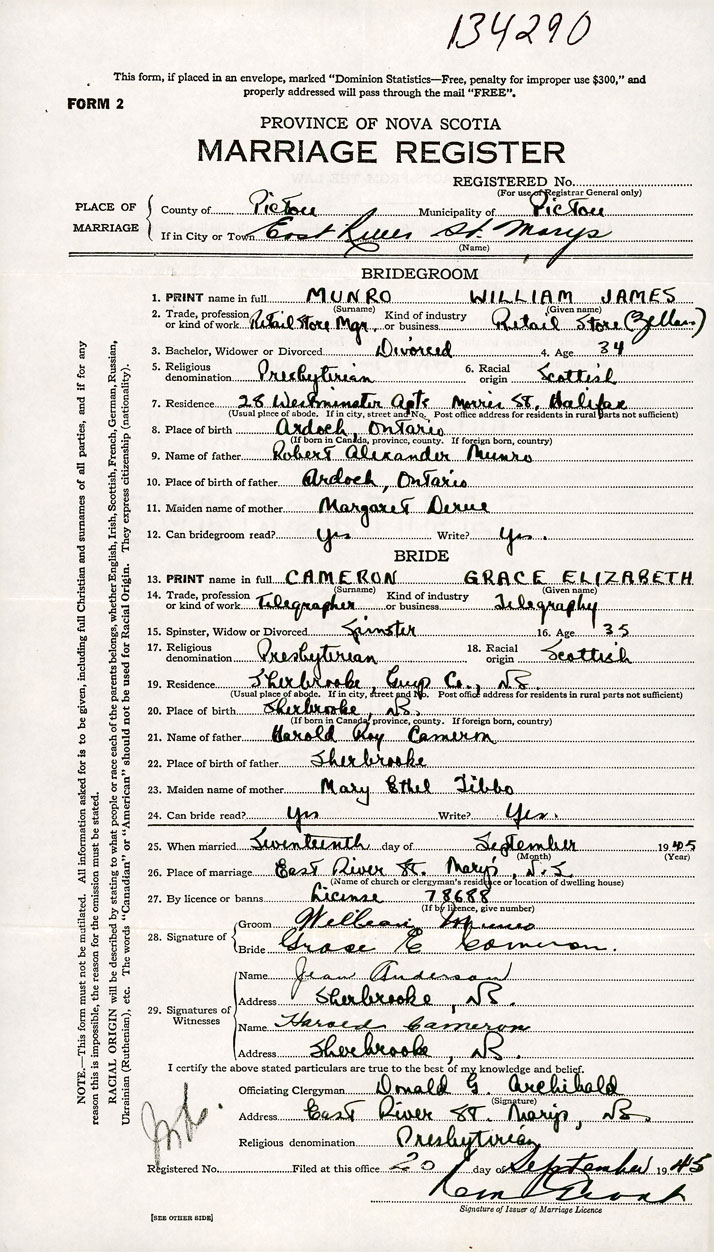 134290
This form, if placed in an envelope, marked "Dominion Statistics—Free, penalty for improper use $300," and
properly addressed will pass through the mail "FREE".
FORM 2
PROVINCE OF NOVA SCOTIA
MARRIAGE REGISTER
REGISTERED No.
(For use of Registrar General only)
PLACE OF MARRIAGE
County of Pictou Municipality of Pictou
If in City or Town East River St. Marys
(Name)
BRIDEGROOM
1. PRINT name in full MUNRO WILLIAM JAMES
(Surname) (Given name)
2. Trade, profession or kind of work Retail Store Mgr. Kind of industry or business Retail Store (Zellers)
3. Bachelor, Widower or Divorced Divorced 4. Age 34
5. Religious denomination Presbyterian 6. Racial origin Scottish
7. Residence 28 Westminster Apts Morris St, Halifax
(Usual place of abode. If in city, street and No. Post office address for residents in rural parts not sufficient)
8. Place of birth Ardoch, Ontario
(If born in Canada, province, county. If foreign born, country)
9. Name of father Robert Alexander Munro
10. Place of birth of father Ardoch, Ontario
11. Maiden name of mother Margaret Derue
12. Can bridegroom read? Yes Write? Yes.
BRIDE
13. PRINT name in full CAMERON GRACE ELIZABETH
(Surname) (Given name)
14. Trade, profession or kind of work Telegrapher Kind of industry or business Telegraphy
15. Spinster, Widow or Divorced Spinster 16. Age 35
17. Religious denomination Presbyterian 18. Racial origin Scottish
19. Residence Sherbrooke, Guys Co., N.S.
(Usual place of abode. If in city, street and No. Post office address for residents in rural parts not sufficient)
20. Place of birth Sherbrooke, N.S.
(If born in Canada, province, county. If foreign born, country)
21. Name of father Harold Roy Cameron
22. Place of birth of father Sherbrooke
23. Maiden name of mother Mary Ethel Tibbo
24. Can bride read? Yes Write? Yes.
25. When married Seventeenth day of September 1945
(Month) (Year)
26. Place of marriage East River St. Mary's, N.S.
(Name of church or clergyman's residence or location of dwelling house)
27. By licence or banns License 78688
(If by licence, give number)
28. Signature of
Groom William Munro
Bride Grace E Cameron.
29. Signatures of Witnesses
Name Jean Anderson
Address Sherbrooke, N.S.
Name Harold Cameron
Address Sherbrooke, N.S.
I certify the above stated particulars are true to the best of my knowledge and belief.
Officiating Clergyman Donald G. Archibald
(Signature)
Address East River St. Marys, N.S.
Religious denomination Presbyterian
Registered No. Filed at this office 20 day of September 1945
Signature of Issuer of Marriage Licence
[SEE OTHER SIDE]
NOTE.—This form must not be mutilated. All information asked for is to be given, including full Christian and surnames of all parties, and if for any
reason this is impossible, the reason for the omission must be stated.
RACIAL ORIGIN will be described by stating to what people or race each of the parents belongs, whether English, Irish, Scottish, French, German, Russian,
Ukrainian (Ruthenian), etc. The words "Canadian" or "American" should not be used for Racial Origin. They express citizenship (nationality).